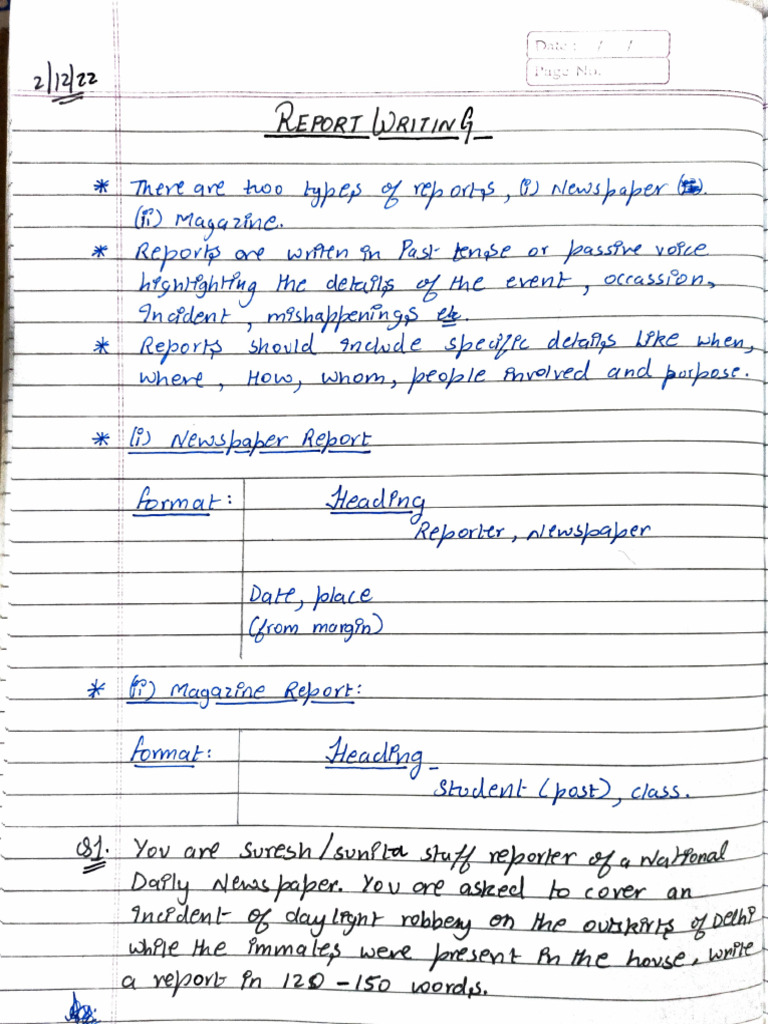 Date : / /
Page No.
2/12/22
REPORT WRITING
* There are two types of reports, (i) Newspaper
(ii) Magazine.
* Reports are writen in Past tense or passive voice
highlighting the details of the event, occassion,
incident, mishappenings etc.
* Reports should include specific details like when,
where, How, whom, people involved and purpose.
* (i) Newspaper Report
format: Heading
Reporter, Newspaper
Date, place
(from margin)
* (ii) Magazine Report:
format: Heading
student (post), class.
Q1. You are suresh/sunita staff reporter of a National
Daily Newspaper. You are asked to cover an
incident of daylight robbery on the outskirts of Delhi
while the immates were present in the house, write
a report in 120 - 150 words.